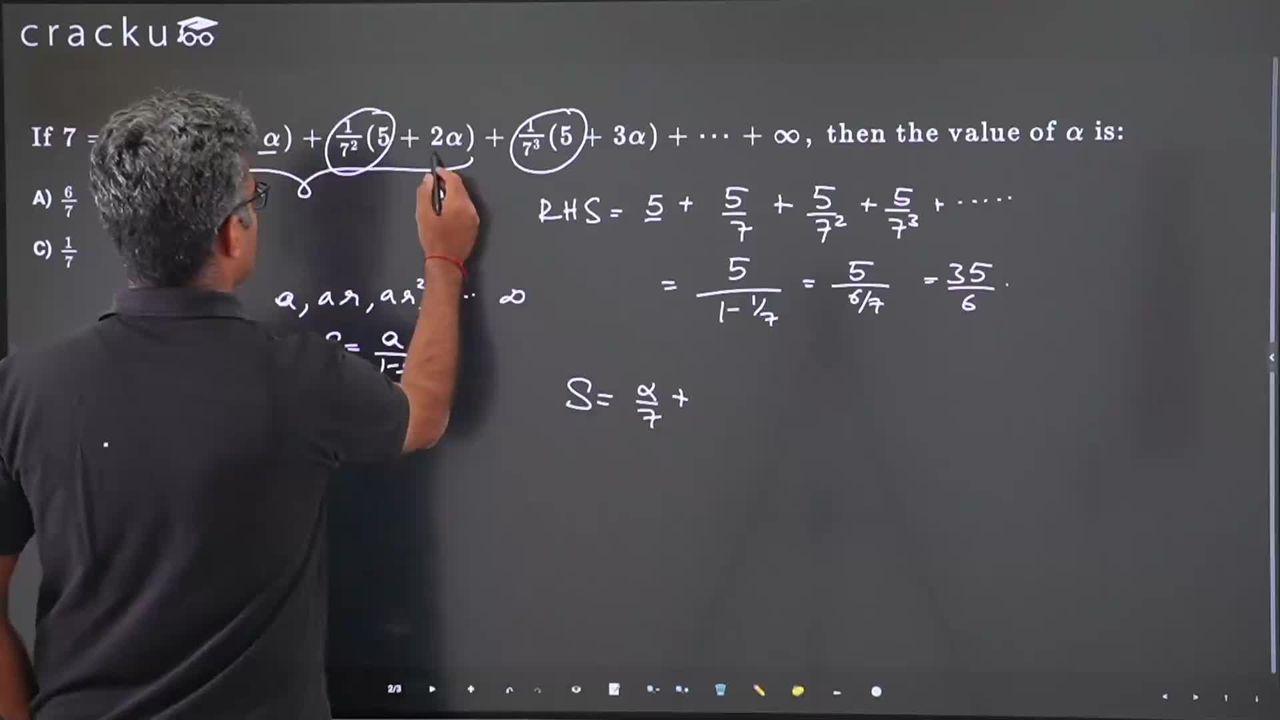 cracku
If 7 = α) + 1/7² (5 + 2α) + 1/7³ (5 + 3α) + ⋯ + ∞, then the value of α is:
A) 6/7
C) 1/7
RHS = 5 + 5/7 + 5/7² + 5/7³ + ......
= 5/(1 - 1/7) = 5/(6/7) = 35/6.
a, ar, ar² ... ∞
= a/1-
S = α/7 +
2/3